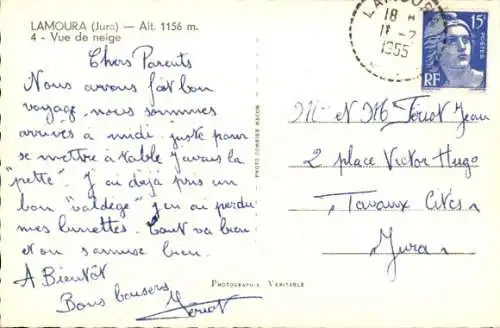 LAMOURA (Jura) — Alt. 1156 m.
4 - Vue de neige
Chers Parents
Nous avons fait bon
voyage, nous sommes
arrivés à midi juste pour
se mettre à table j'avais la
"pette". J'ai déjà pris un
bon "valdege" j'en ai perdu
mes lunettes. Tout va bien
et on s'amuse bien.
A Bientôt
Bons baisers
PHOTO COMBIER MACON
PHOTOGRAPHIE VÉRITABLE
LAMOURA
18 H
11 - 2
1955
15F
POSTES
RF
Mme et M Fériot Jean
2 place Victor Hugo
Tavaux Cités
Jura